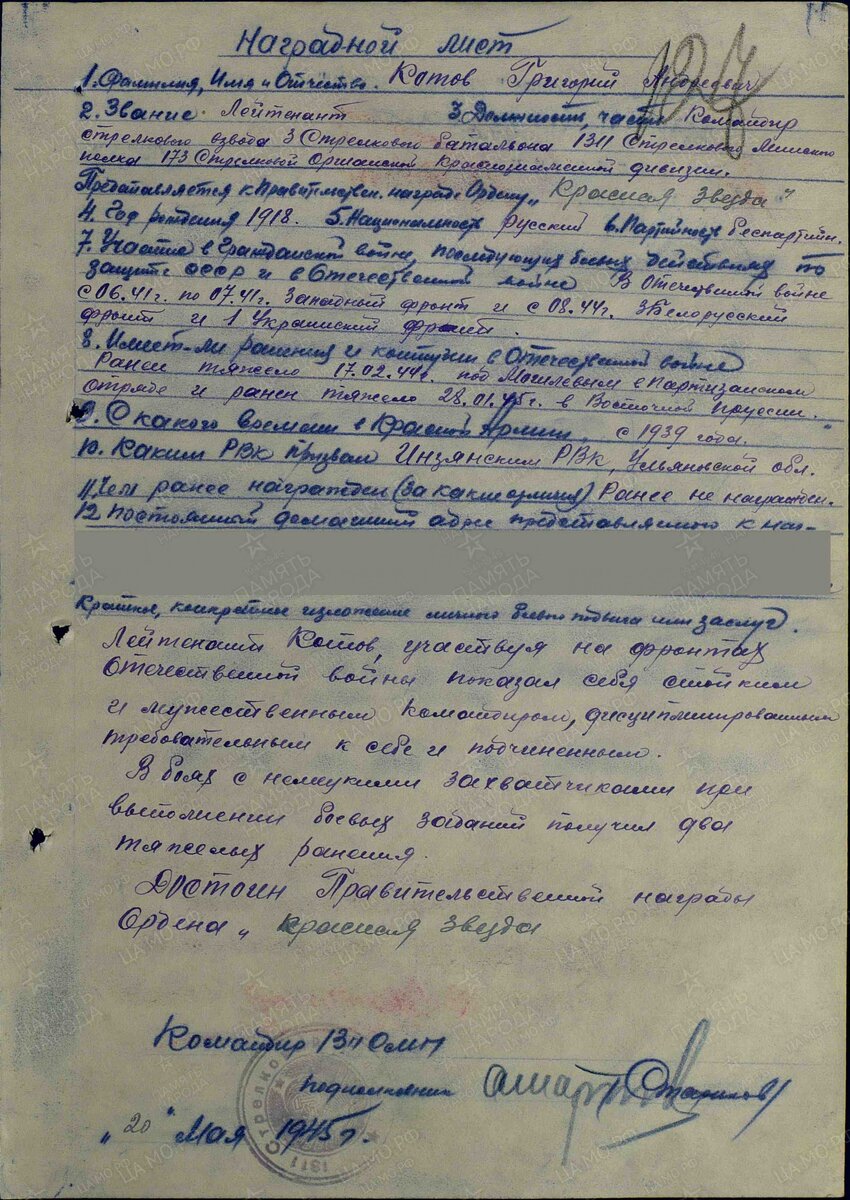 Наградной лист
1. Фамилия, Имя и Отчество. Котов Григорий Андреевич
2. Звание Лейтенант 3. Должность, часть Командир
стрелкового взвода 3 Стрелкового батальона 1311 Стрелкового Минского
полка 173 Стрелковой Оршанской Краснознаменной дивизии.
Представляется к Правительствен. награде Ордену „Красная Звезда"
4. Год рождения 1918. 5. Национальность русский 6. Партийность беспартийн.
7. Участие в Гражданской войне, последующих боевых действиях по
защите СССР и в Отечественной войне В Отечественной войне
с 06.41г. по 07.41г. Западный фронт и с 08.44г. 3 Белорусский
фронт и 1 Украинский фронт.
8. Имеет-ли ранения и контузии в Отечественной войне
Ранен тяжело 17.02.44г. под Могилевым в Партизанском
отряде и ранен тяжело 28.01.45г. в Восточной Пруссии.
9. С какого времени в Красной Армии, с 1939 года.
10. Каким РВК призван Инзянским РВК, Ульяновской обл.
11. Чем ранее награжден (за какие отличия) Ранее не награжден.
12 Постоянный домашний адрес представляемого к наг-
Краткое, конкретное изложение личного боевого подвига или заслуг.
Лейтенант Котов, участвуя на фронтах
Отечественной войны показал себя стойким
и мужественным командиром, дисциплинированным
требовательным к себе и подчиненным.
В боях с немецкими захватчиками при
выполнении боевых заданий получил два
тяжелых ранения.
Достоин Правительственной награды
Ордена „Красная Звезда
Командир 1311
подполковник
„20" Мая 1945г.